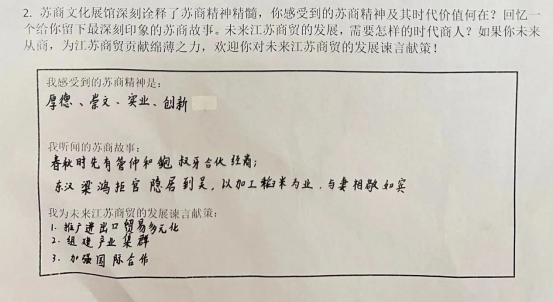 2. 苏商文化展馆深刻诠释了苏商精神精髓，你感受到的苏商精神及其时代价值何在？回忆一
个给你留下最深刻印象的苏商故事。未来江苏商贸的发展，需要怎样的时代商人？如果你未来
从商，为江苏商贸贡献绵薄之力，欢迎你对未来江苏商贸的发展谏言献策！
我感受到的苏商精神是：
厚德、崇文、实业、创新
我所听闻的苏商故事：
春秋时先有管仲和鲍叔牙合伙经商；
东汉梁鸿拒官隐居到吴，以加工稻米为业，与妻相敬如宾
我为未来江苏商贸的发展谏言献策：
1. 推广进出口贸易多元化
2. 组建产业集群
3. 加强国际合作